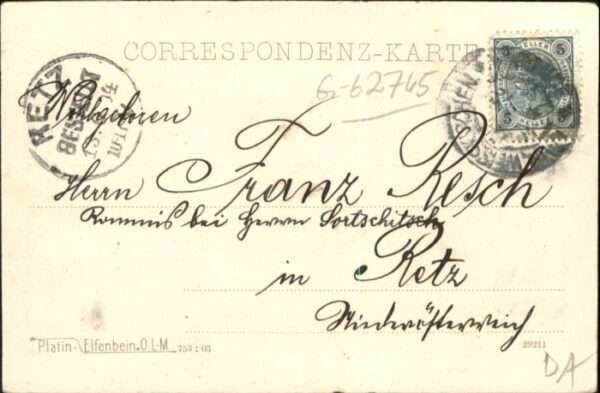 CORRESPONDENZ-KARTE
5 HELLER 5
RETZ
BESTELLT
G-62745
Wohlgeboren
Herrn Franz Resch
Kommis bei Herrn Fortschitsch
in Retz
Niederösterreich
Platin-Elfenbein.O.L-M 753 : 03
29211
DA